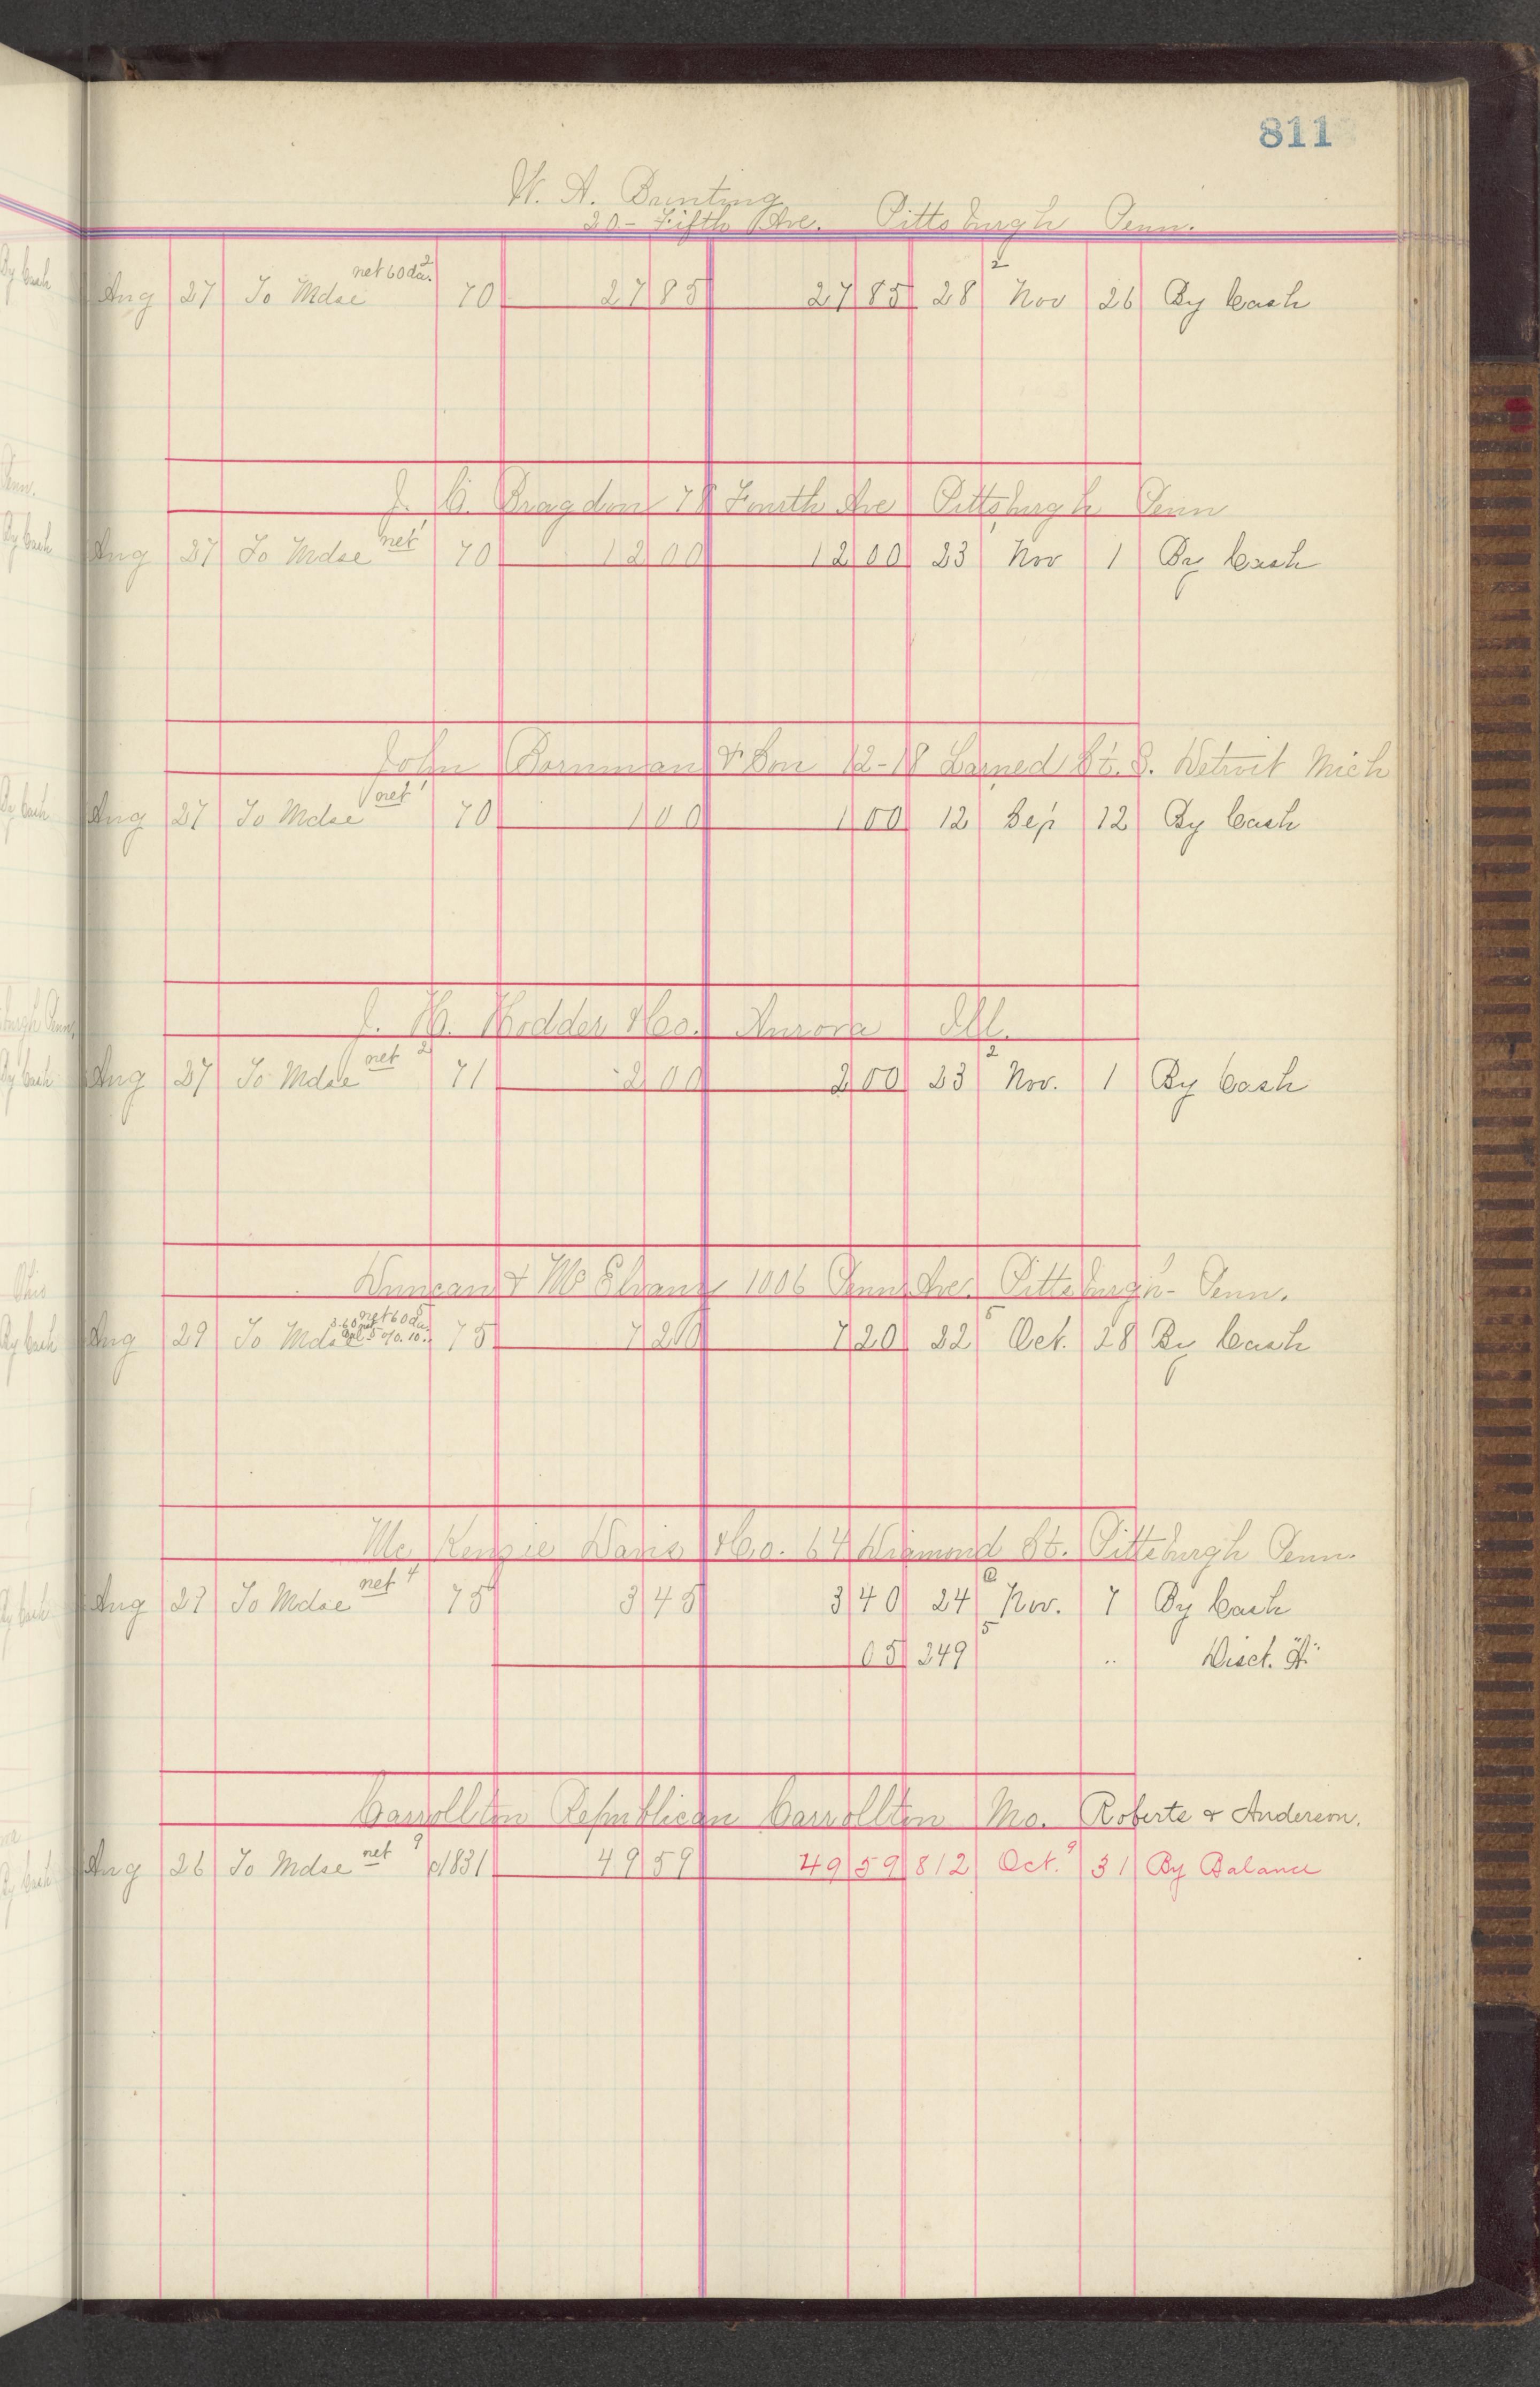 811
W. A. Bunting
20- Fifth Ave. Pittsburgh Penn.
Aug 27 To Mdse net 60 da. 2 70 27 85 27 85 28 2 Nov 26 By Cash
J. C. Bragdon 78 Fourth Ave Pittsburgh Penn
Aug 27 To Mdse net 1 70 12 00 12 00 23 Nov 1 By Cash
John Bornman & Son 12-18 Larned St. Detroit Mich
Aug 27 To Mdse net 1 70 1 00 1 00 12 Sep 12 By Cash
J. H. Hodder & Co. Aurora Ill.
Aug 27 To Mdse net 2 71 2 00 2 00 23 2 Nov. 1 By Cash
Duncan & Mc 1006 Penn Ave. Pittsburgh- Penn.
Aug 29 To Mdse net 60 da. 5 % 10. 75 7 20 7 20 22 5 Oct. 28 By Cash
Mc Kenzie Davis & Co. 64 Diamond St. Pittsburgh Penn.
Aug 27 To Mdse net 4 75 3 45 3 40 24 Nov. 7 By Cash
05 249 5 .. Disct. "A"
Carrollton Republican Carrollton Mo. Roberts & Anderson.
Aug 26 To Mdse net 9 c1831 49 59 49 59 812 Oct. 9 31 By Balance